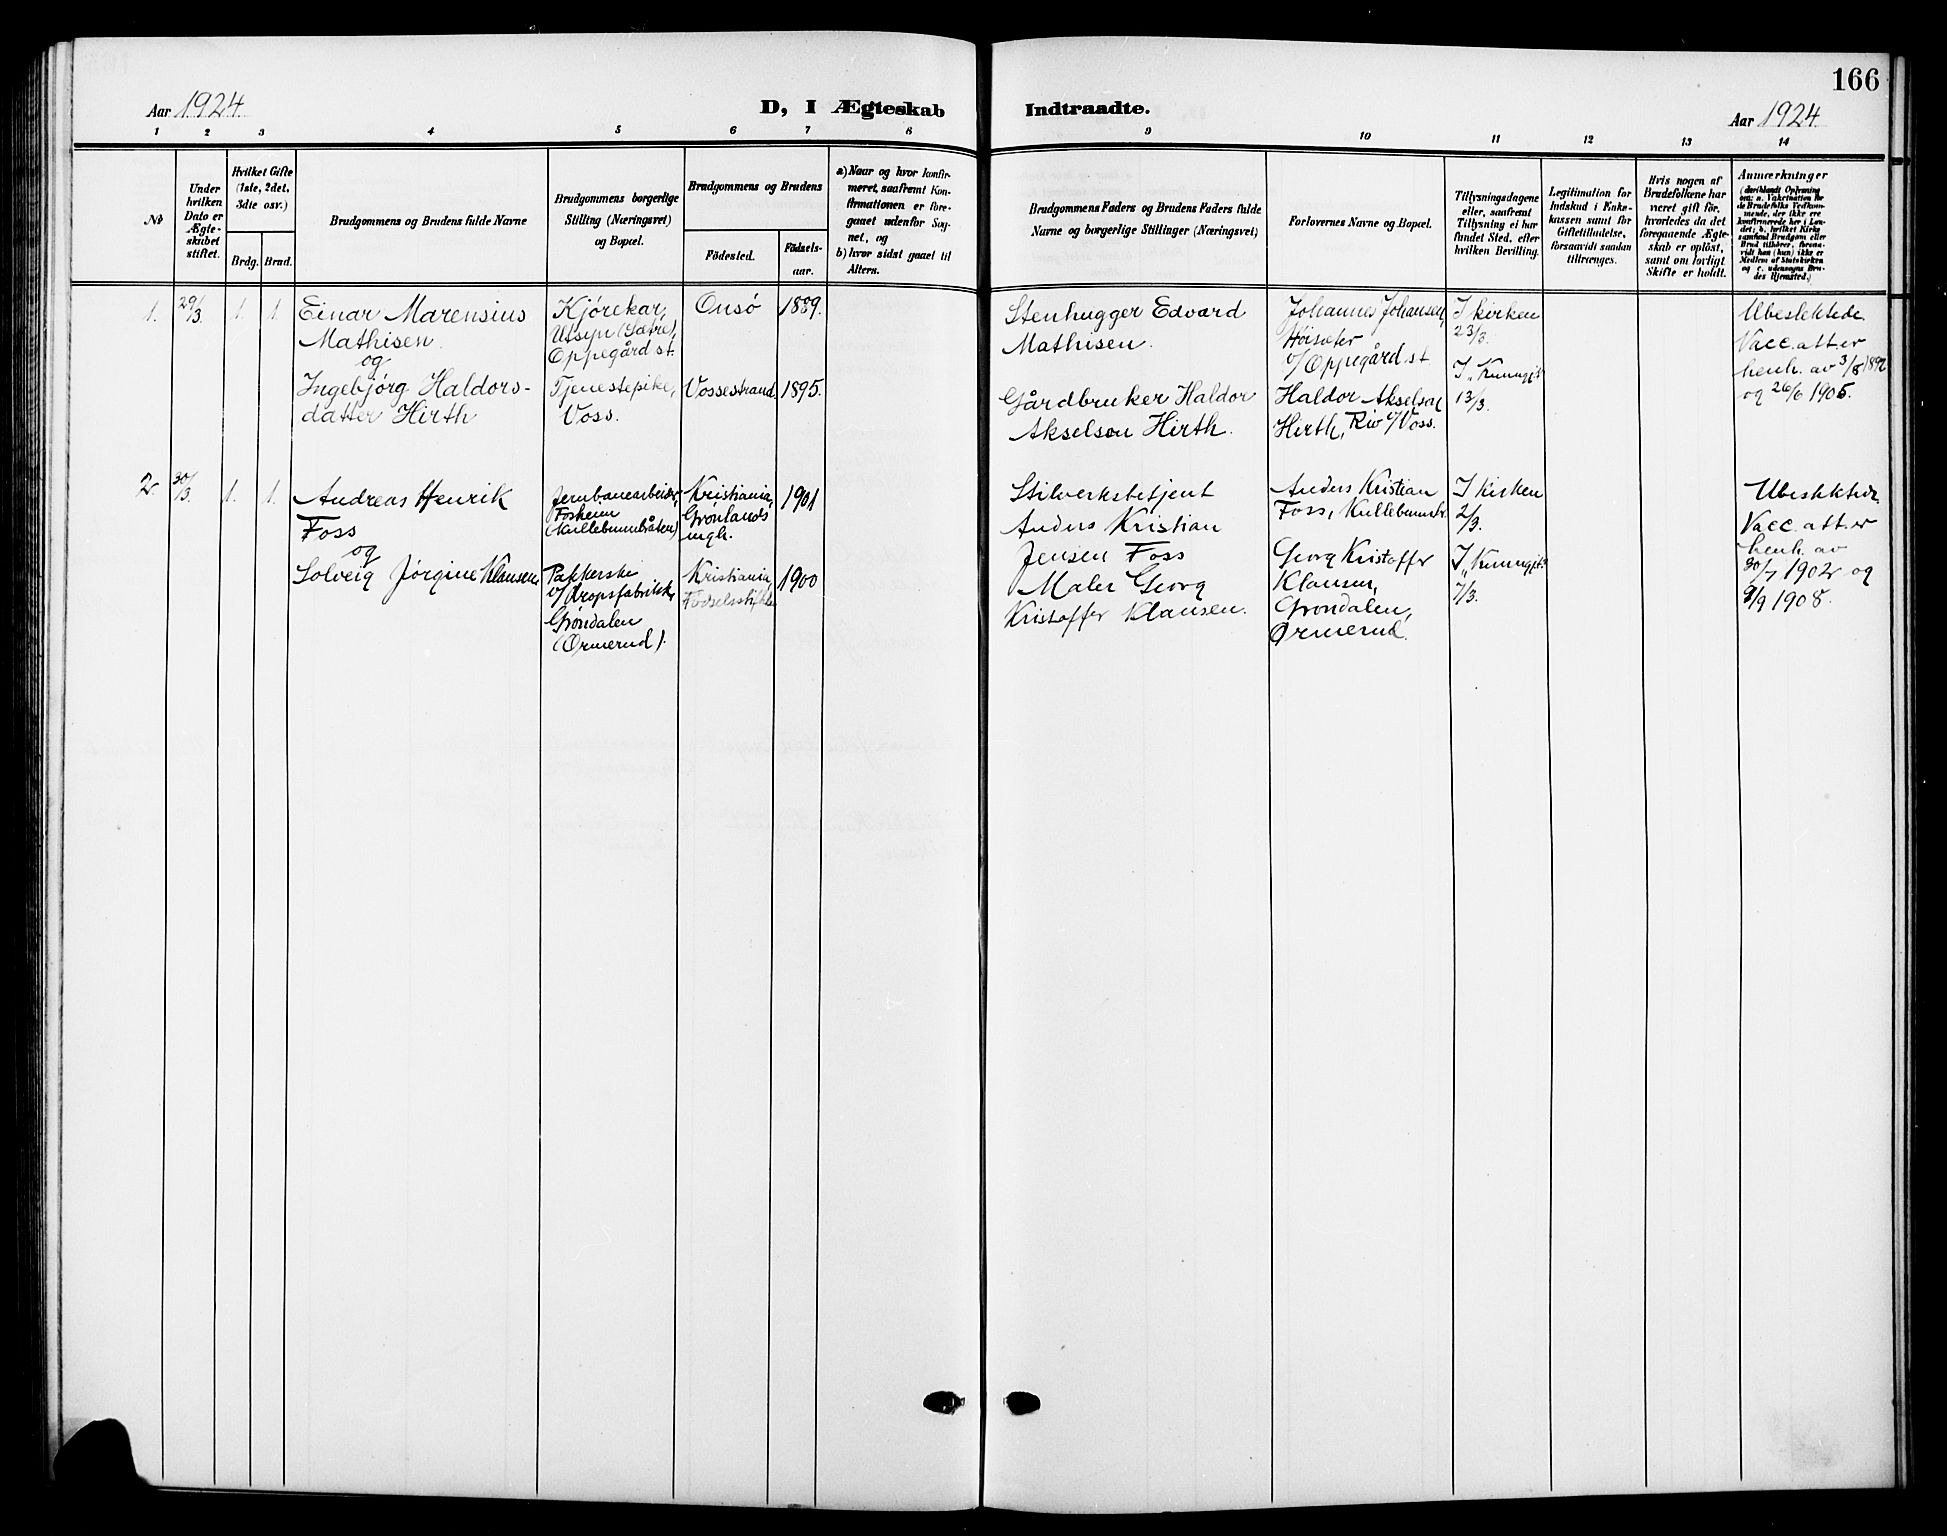 166
Aar 1924.
D, I Ægteskab
Indtraadte.
Aar 1924.
1 2 3 4 5 6 7 8
9 10 11 12 13 14
No
Under
hvilken
Dato er
Ægte-
skabet
stiftet.
Hvilket Gifte
(1ste, 2det,
3die osv.)
Brdg. Brud.
Brudgommens og Brudens fulde Navne
Brudgommens borgerlige
Stilling (Næringsvei)
og Bopæl.
Brudgommens og Brudens
Födested.
Födsels-
aar.
a) Naar og hvor konfir-
meret, saafremt Kon-
firmationen er fore-
gaaet udenfor Sog-
net, og
b) hvor sidst gaaet til
Alters.
Brudgommens Faders og Brudens Faders fulde
Navne og borgerlige Stillinger (Næringsvei)
Forlovernes Navne og Bopæl.
Tillysningsdagene
eller, saafremt
Tillysning ei har
fundet Sted, efter
hvilken Bevilling.
Legitimation for
Indskud i Enke-
kassen samt för
Giftetilladelse,
forsaavidt saadan
tiltrænges.
Hvis nogen af
Brudefolkene har
været gift för,
hvorledes da det
foregaaende Ægte-
skab er oplöst,
samt om lovligt
Skifte er holdt.
Anmærkninger
(deriblandt Oplysning
om: a. Vakcination for
de Brudefolks Vedkom-
mende, der ikke ere
konfirmerede her i Lan-
det; b. hvilket Kirke-
samfund Brudgom eller
Brud tilhörer, forsaa-
vidt han (hun) ikke er
Medlem af Statskirken
og c. udensogns Bru-
des Hjemsted.)
1. 29/3. 1 1
Einar Marensius
Mathisen
og
Ingebjørg Haldors-
datter Hirth
Kjørekar,
Utsyn (Sætre),
Oppegård st.
Tjenestepike,
Voss.
Onsø 1889.
Vossestrand. 1895.
Stenhugger Edvard
Mathisen.
Gårdbruker Haldor
Akselson Hirth.
Johannes Johansen,
Høisæter
v/ Oppegård st
Haldor Akselson
Hirth, Riv v/ Voss.
I kirken
23/3.
I "Kunngjst"
13/3.
Ubeslektede.
Vacc.att er
henh. av 3/8 1892
og 26/6 1905.
2. 30/3. 1. 1.
Andreas Henrik
Foss
og
Solveig Jørgine Klausen,
Jernbanearbeider,
Fosheim
(Kullebunnbråten)
Pakkerske
v/ Dropsfabrikk,
Grøndalen
(Ørmerud).
Kristiania,
Grønlands
mgh. 1901
Kristiania,
Fødselsstiftelse 1900
Anders Kristian
Jensen Foss
Maler Georg
Kristoffer Klausen.
Anders Kristian
Foss, Kullebunnbr.
Georg Kristoffer
Klausen,
Grøndalen,
Ørmerud.
I Kirken
2/3.
I "Kunngjst"
7/3.
Ubeslektede.
Vacc. att er
henh. av
30/7 1902 og
9/9 1908.